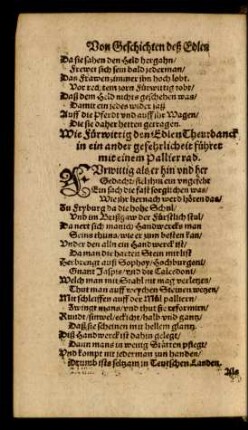 Von Geschichten deß Edlen
Da sie sahen den Held hergahn/
Frewet sich sein bald jederman/
Das Frawenzimmer ihn hoch lobt.
Vor rechtem zorn Fürwittig tobt/
Daß dem Held nichts geschehen was/
Damit ein jedes wider saß
Auff die Pferdt vnd auff ihr Wagen/
Die sie daher hetten getragen.
Wie Fürwittig den Edlen Theurdanck
in ein ander gefehrlicheit führet
mit einem Pallierrad.
Fürwittig als er hin vnd her
Gedacht/ fiel ihm ein vngefehr
Ein sach die fast sorglichen was/
Wie ihr hernach werd hören das/
Zu Fryburg da die hohe Schul/
Vnd im Brißgaw der Fürstlich stul/
Da nert sich manich Handwercks man
Seins thuns/ wie er zum besten kan/
Vnder den alln ein Handwerck ist/
Da man die harten Stein mit list
Herbrengt auß Sophoy/ Hochburgent/
Gnant Jaspis/ vnd die Calcedoni/
Welch man mit Stahl nit mag verletzen/
Thut man auff weychen Steinen wetzen/
Mit schleiffen auff der Mül palliern/
Zwingt mans/ vnd thut sie reformirn/
Rundt/ simbel/ eckicht/ halb vnd gantz/
Daß sie scheinen mit hellem glantz.
Diß Handwerck ist dahin gelegt/
Dann mans in wenig Stätten pflegt/
Vnd kompt nit jederman zun henden/
Drumb ists seltzam in Teutschen Landen.
Als